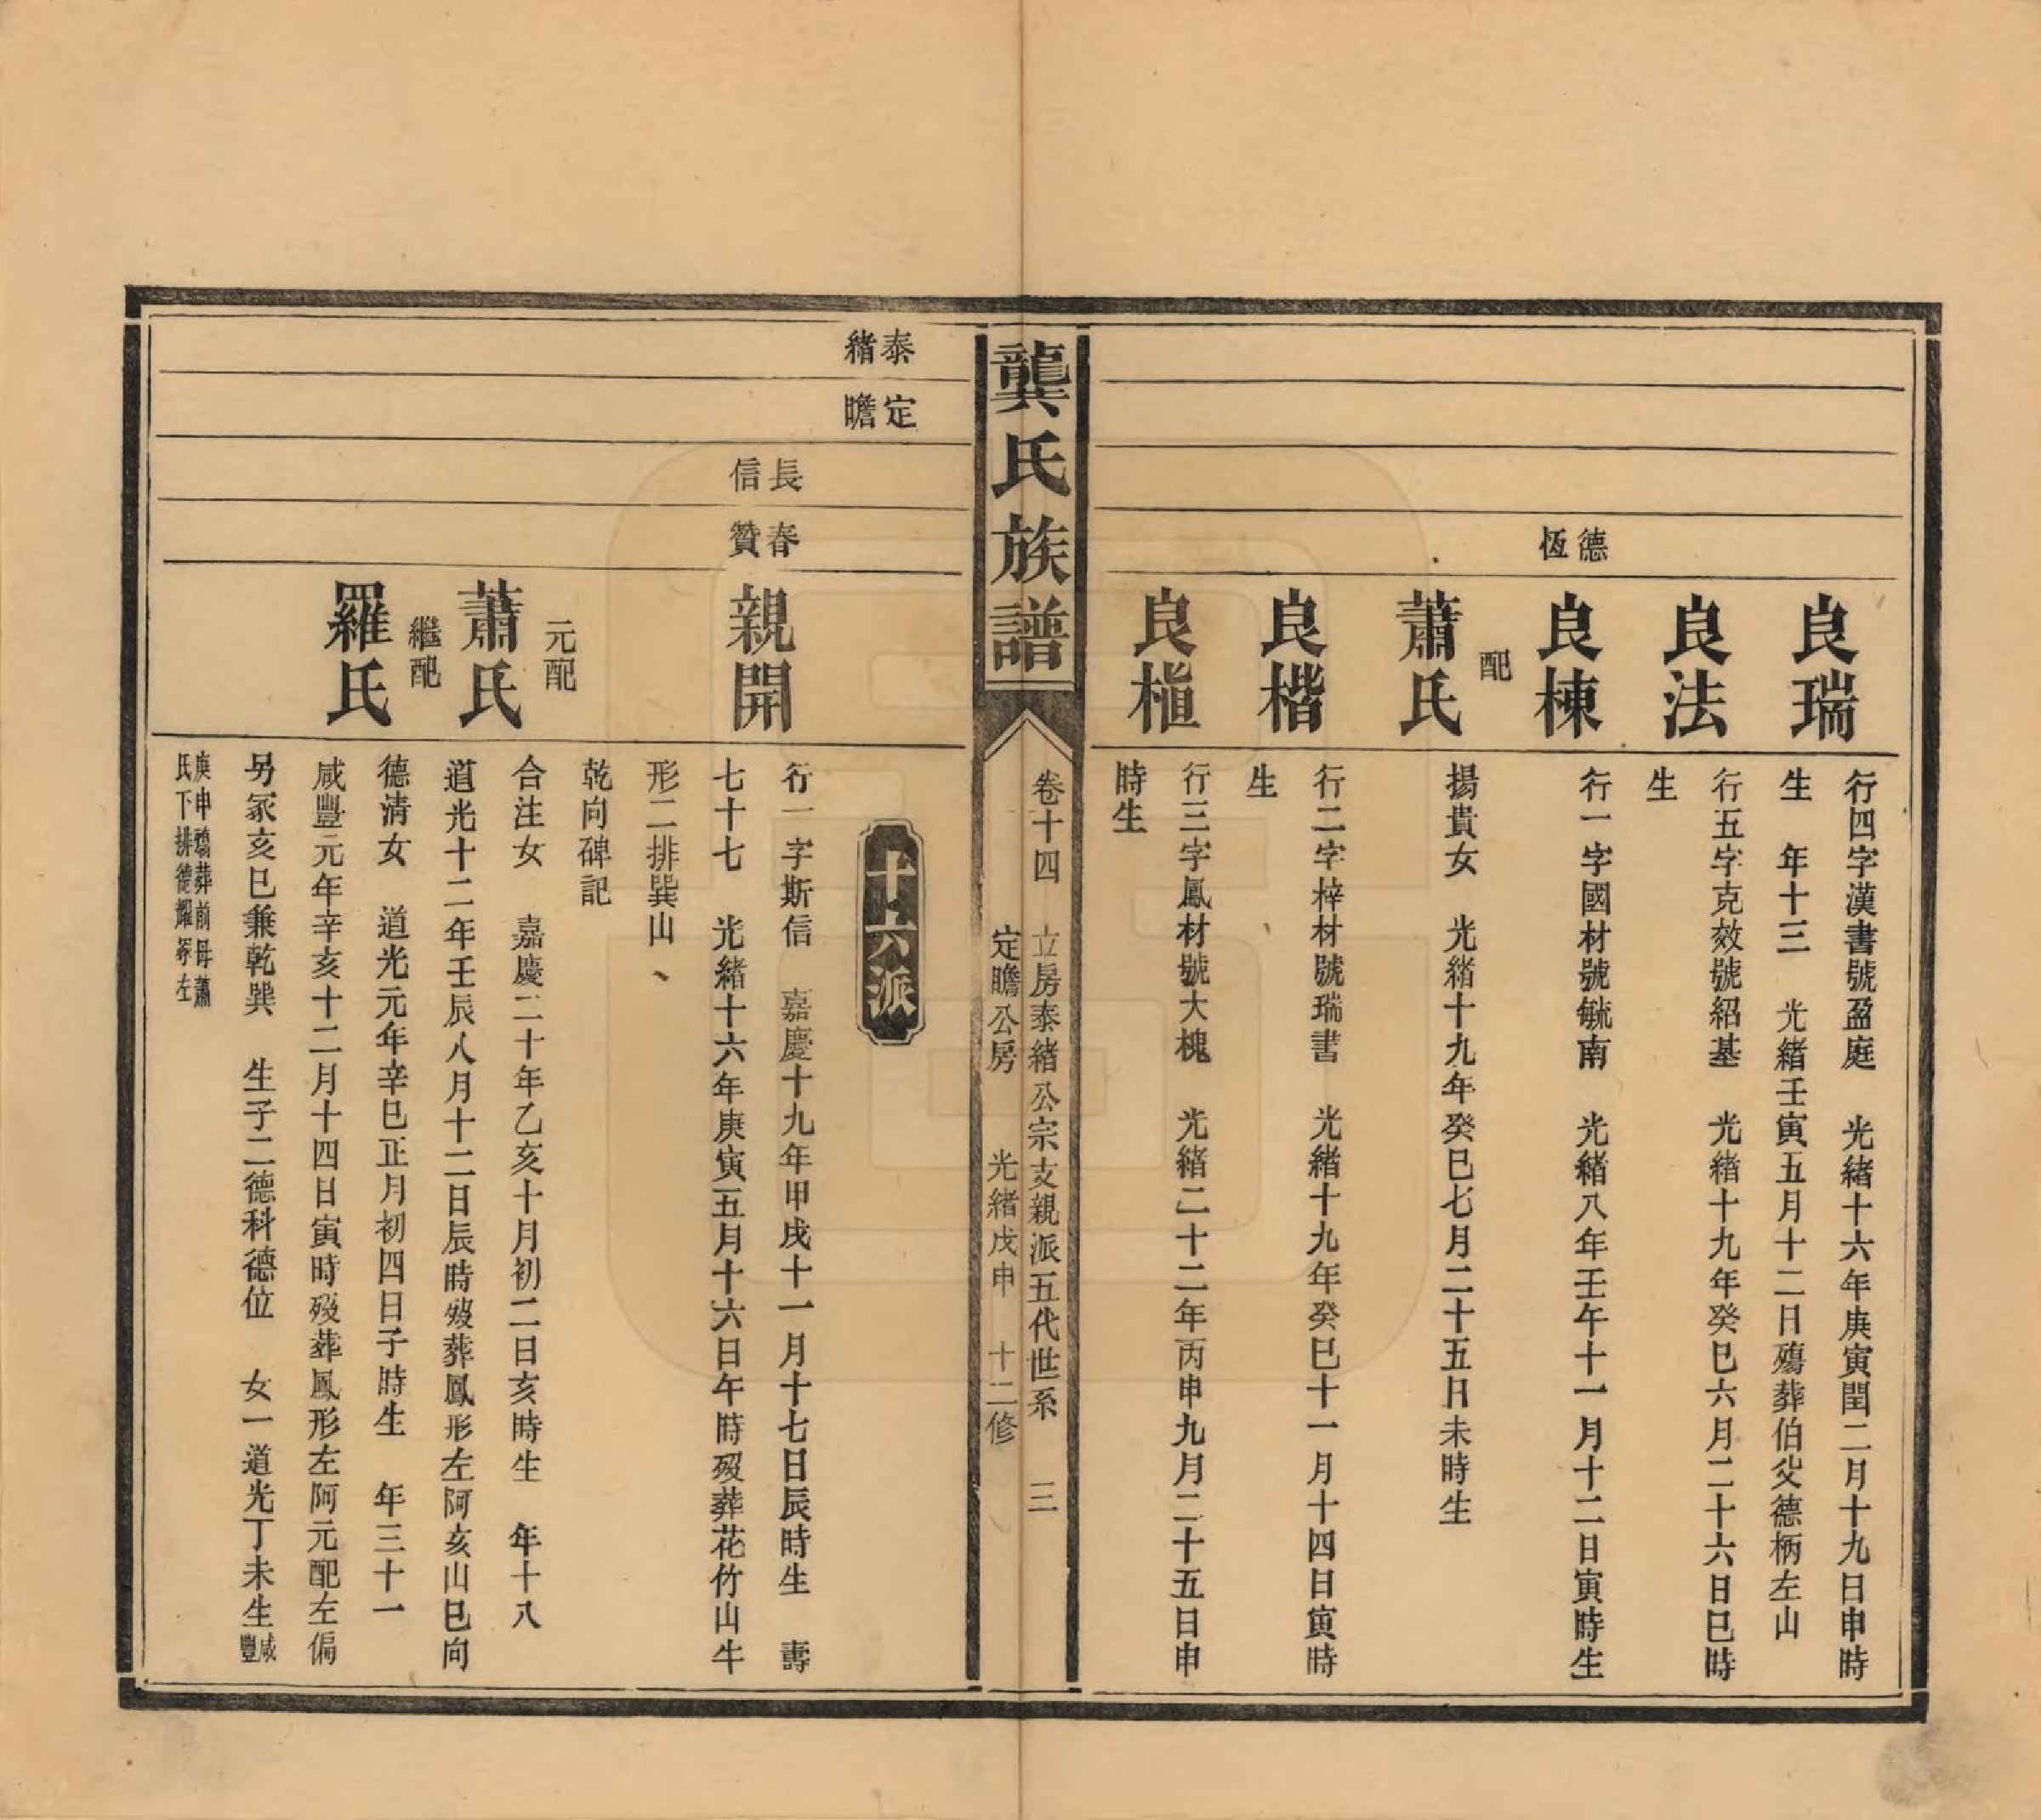 德恆
良瑞
行四字漢書號盈庭　光緒十六年庚寅閏二月十九日申時
生　年十三　光緒壬寅五月十二日殤葬伯父德柄左山
良法
行五字克效號紹基　光緒十九年癸巳六月二十六日巳時
生
良棟
行一字國材號毓南　光緒八年壬午十一月十二日寅時生
配
蕭氏
揚貴女　光緒十九年癸巳七月二十五日未時生
良楷
行二字梓材號瑞書　光緒十九年癸巳十一月十四日寅時
生
良植
行三字鳳材號大槐　光緒二十二年丙申九月二十五日申
時生
龔氏族譜
卷十四　立房泰緒公宗支親派五代世系　三
定瞻公房　光緒戊申　十二修
泰緒
定瞻
十六派
長信
春贊
親開
行一字斯信　嘉慶十九年甲戌十一月十七日辰時生　壽
七十七　光緒十六年庚寅五月十六日午時歿葬花竹山牛
形二排巽山、
乾向碑記
元配
蕭氏
合注女　嘉慶二十年乙亥十月初二日亥時生　年十八
道光十二年壬辰八月十二日辰時歿葬鳳形左阿亥山巳向
繼配
羅氏
德清女　道光元年辛巳正月初四日子時生　年三十一
咸豐元年辛亥十二月十四日寅時歿葬鳳形左阿元配左偏
另冢亥巳兼乾巽　生子二德科德位　女一道光丁未生咸豐
庚申殤葬前母蕭
氏下排從耀冢左